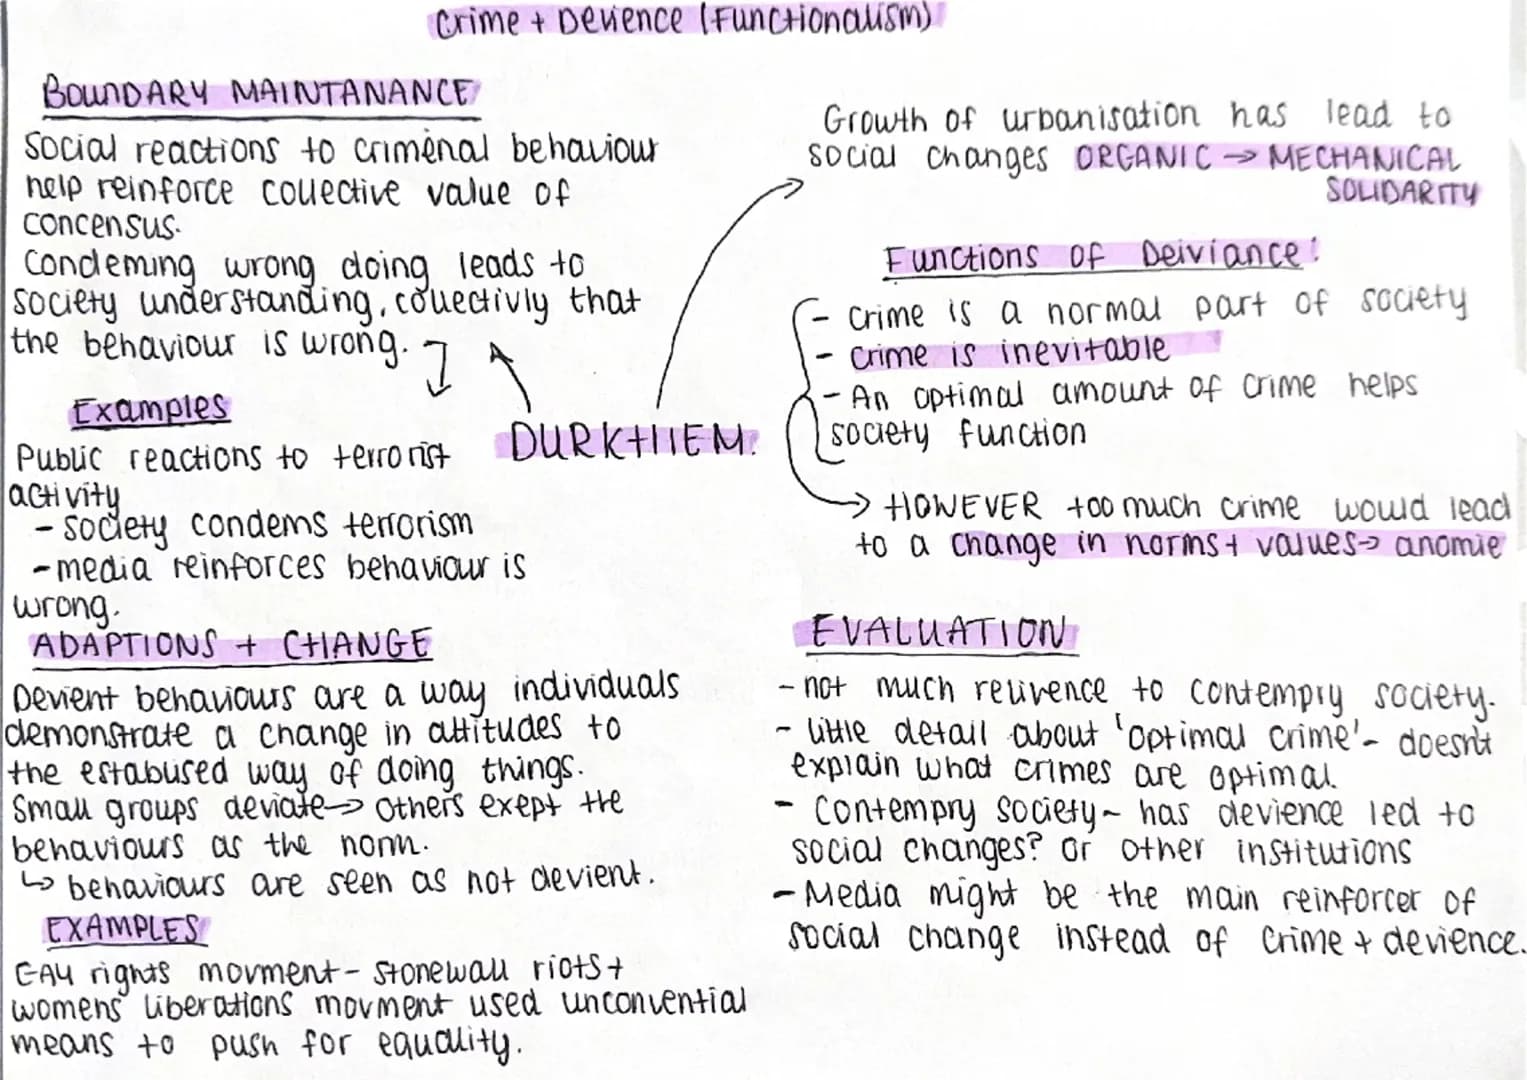 Crime + Devience (Functionalism)
BOUNDARY MAINTANANCE
Social reactions to criminal behaviour
help reinforce collective value of
concensus.
Condeming wrong doing leads to
society understanding, collectivly that
the behaviour is wrong.
Examples
Public reactions to terrorist
activity
- society condems terrorism
- media reinforces behaviour is
wrong.
ADAPTIONS + CHANGE
Devient behaviours are a way individuals
demonstrate a change in attitudes to
the establised way of doing things.
Small groups deviate → others exept the
behaviours as the norm.
↳ behaviours are seen as not devient.
EXAMPLES
GAY rights movment - stonewall riots +
womens liberations movment used unconvential
means to push for equality.
DURKHIEM.
Growth of urbanisation has lead to
social changes ORGANIC → MECHANICAL
SOLIDARITY
Functions of Deiviance:
- crime is a normal part of society
- crime is inevitable
- An optimal amount of crime helps
society function
→ HOWEVER too much crime would lead
to a change in norms + values → anomie
EVALUATION
- not much relivence to contempry society.
- little detail about 'optimal crime' - doesn't
explain what crimes are optimal.
- Contempry society ~ has devience led to
social changes? or other institutions
- Media might be the main reinforcer of
social change instead of crime + devience.